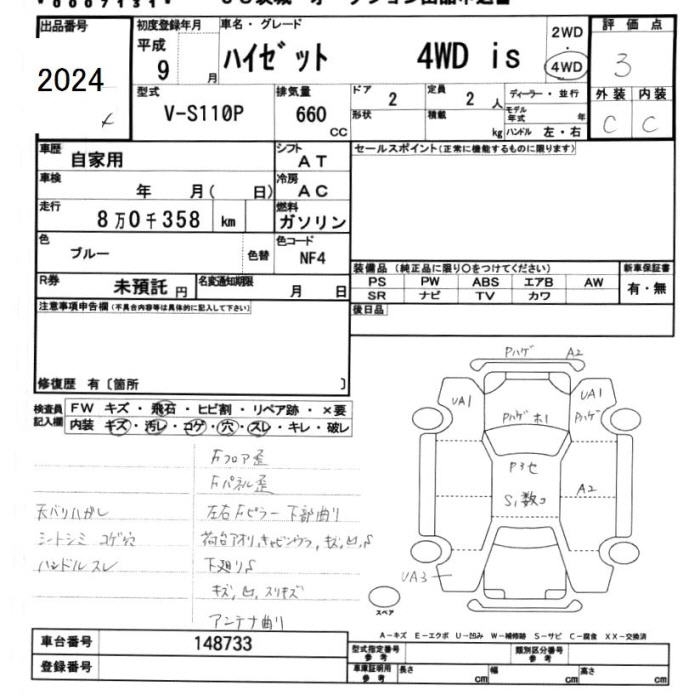 出品番号 初度登録年月 車名・グレード 2WD 評価点
2024 平成 9 月 ハイゼット 4WD is ・ 4WD 3
型式 排気量 ドア 定員 ディーラー・並行 外装 内装
V-S110P 660 CC 2 2 人 モデル年式 年 C C
形状 積載 kg ハンドル 左・右
車歴 自家用 シフト AT セールスポイント(正常に機能するものに限ります)
車検 年 月( 日) 冷房 AC
走行 8万0千358 km 燃料 ガソリン
色 ブルー 色替 色コード NF4
装備品(純正品に限り○をつけてください) 新車保証書
R券 未預託 円 名変通知期限 月 日 PS PW ABS エアB AW 有・無
SR ナビ TV カワ
注意事項申告欄(不具合内容等は具体的に記入して下さい) 後日品
修復歴 有〔箇所 〕
検査員記入欄 FW キズ・飛石・ヒビ割・リペア跡・×要
内装 キズ・汚レ・コゲ・穴・スレ・キレ・破レ
Pハゲ A2
UA1 UA1
Pハゲ ホ1 Pハゲ
Fフロア歪
Fパネル歪
P3セ
S1数コ A2
天バリハガレ 左右Fピラー下部曲り
シートシミ コゲ穴 荷台アオリ,キャビンウラ,キズ,凹,S
ハンドルスレ 下廻りS
UA3
キズ,凹,スリキズ
スペア
アンテナ曲り
車台番号 148733 A-キズ E-エクボ U-凹み W-補修跡 S-サビ C-腐食 XX-交換済
型式指定番号参考 類別区分番号参考
登録番号 車庫証明用参考 長さ cm 幅 cm 高さ cm